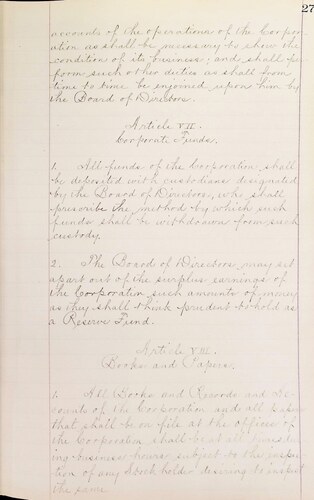 27
accounts of the operations of the Corpor-
ation as shall be necessary to show the
condition of its business; and shall per-
form such other duties as shall from
time to time be enjoined upon him by
the Board of Directors.
Article VII.
Corporate Funds.
1. All funds of the Corporation shall
be deposited with custodians designated
by the Board of Directors, who shall
prescribe the method by which such
funds shall be withdrawn from such
custody.
2. The Board of Directors may set
apart out of the surplus earnings of
the Corporation such amounts of money
as they shall think prudent to hold as
a Reserve Fund.
Article VIII.
Books and Papers.
1. All Books and Records and Ac-
counts of the Corporation and all papers
that shall be on file at the offices of
the Corporation shall be at all times dur-
ing business hours subject to the inspec-
tion of any Stockholder desiring to inspect
the same.